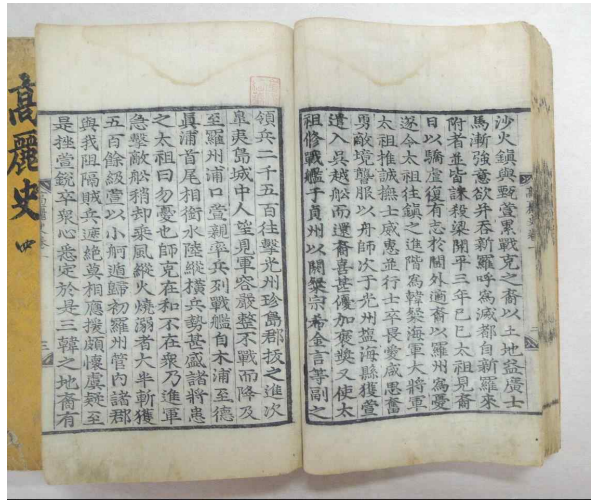 沙火鎮與甄萱累戰克之裔以土地益廣士
馬漸強意欲并吞新羅呼為滅都自新羅來
附者並皆誅殺梁開平三年己巳太祖見裔
日以驕虐復有志於閫外適裔以羅州為憂
遂令太祖往鎮之進階為韓粲海軍大將軍
太祖推誠撫士威惠並行士卒畏愛咸思奮
勇敵境讋服以舟師次于光州塩海縣獲萱
遣入吳越舡而還裔喜甚優加褒奬又使太
祖修戰艦于貞州以閼粲宗希金言等副之
領兵二千五百往擊光州珍島郡拔之進次
皐夷島城中人望見軍容嚴整不戰而降及
至羅州浦口萱親率兵列戰艦自木浦至德
眞浦首尾相銜水陸縱橫兵勢甚盛諸將患
之太祖曰勿憂也師克在和不在衆乃進軍
急擊敵舡稍却乘風縱火燒溺者大半斬獲
五百餘級萱以小舸遁歸初羅州管內諸郡
與我阻隔賊兵遮絶莫相應援頗懷虞疑至
是挫萱銳卒衆心悉定於是三韓之地裔有
三
高麗史 四